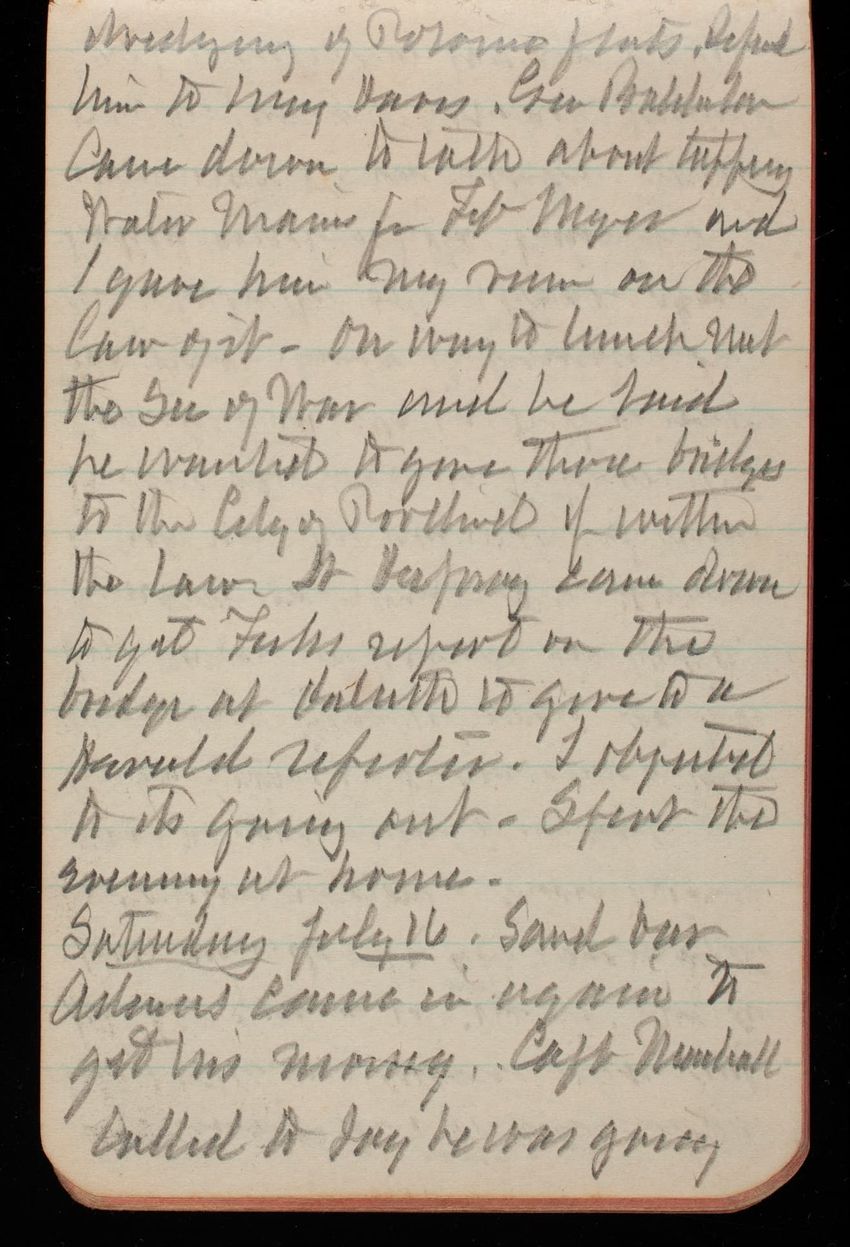 dredging of Potomac flats. Refered
him to Maj Davis. Gen Batchelder
Came down to talk about tapping
Water Mains for Fort Myer and
I gave him my view on the
Law of it - On way to lunch Met
the Sec of War and he said
he wanted to give those bridges
to the City of if within
the Law. Lt came down
to get report on the
bridge at Duluth to give to a
Herald reporter. I objected
to its going out - Spent the
evening at home.
Saturday July 16. Sand Bar
Adams came in again to
get his money. Capt
Called to say he was going